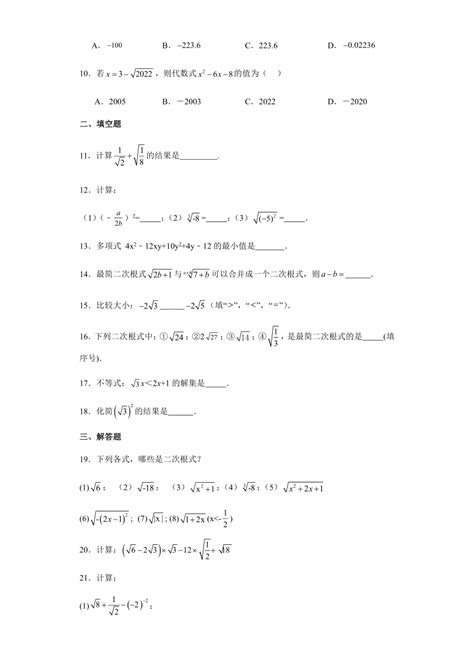 A．−100 B．−223.6 C．223.6 D．−0.02236
10．若 x=3−√2022，则代数式 x²−6x−8 的值为（ ）
A．2005 B．﹣2003 C．2022 D．﹣2020
二、填空题
11．计算 1/√2+√(1/8) 的结果是________．
12．计算：
（1）(﹣a/2b)²=_____；（2）∛-8 =_____；（3）√(−5)² =_____．
13．多项式 4x²﹣12xy+10y²+4y﹣12 的最小值是______．
14．最简二次根式 √2b+1 与 ᵃ⁺¹√7+b 可以合并成一个二次根式，则 a−b=______．
15．比较大小：−2√3 ______−2√5（填“>”，“<”，“=”）．
16．下列二次根式中：①√24；②2√27；③√14；④√(1/3)，是最简二次根式的是_____(填
序号)．
17．不等式：√3x＜2x+1 的解集是_____．
18．化简(√3)²的结果是______．
三、解答题
19．下列各式，哪些是二次根式？
(1)√6； （2）√-18； （3）√x²+1；（4）∛-8；（5）√x²+2x+1
(6)√-(2x−1)²；(7)√|x|；(8)√1+2x (x<-1/2)
20．计算：(√6−2√3)×√3−12×√(1/2)+√18
21．计算：
(1)√8+1/√2−(−2)⁻²；